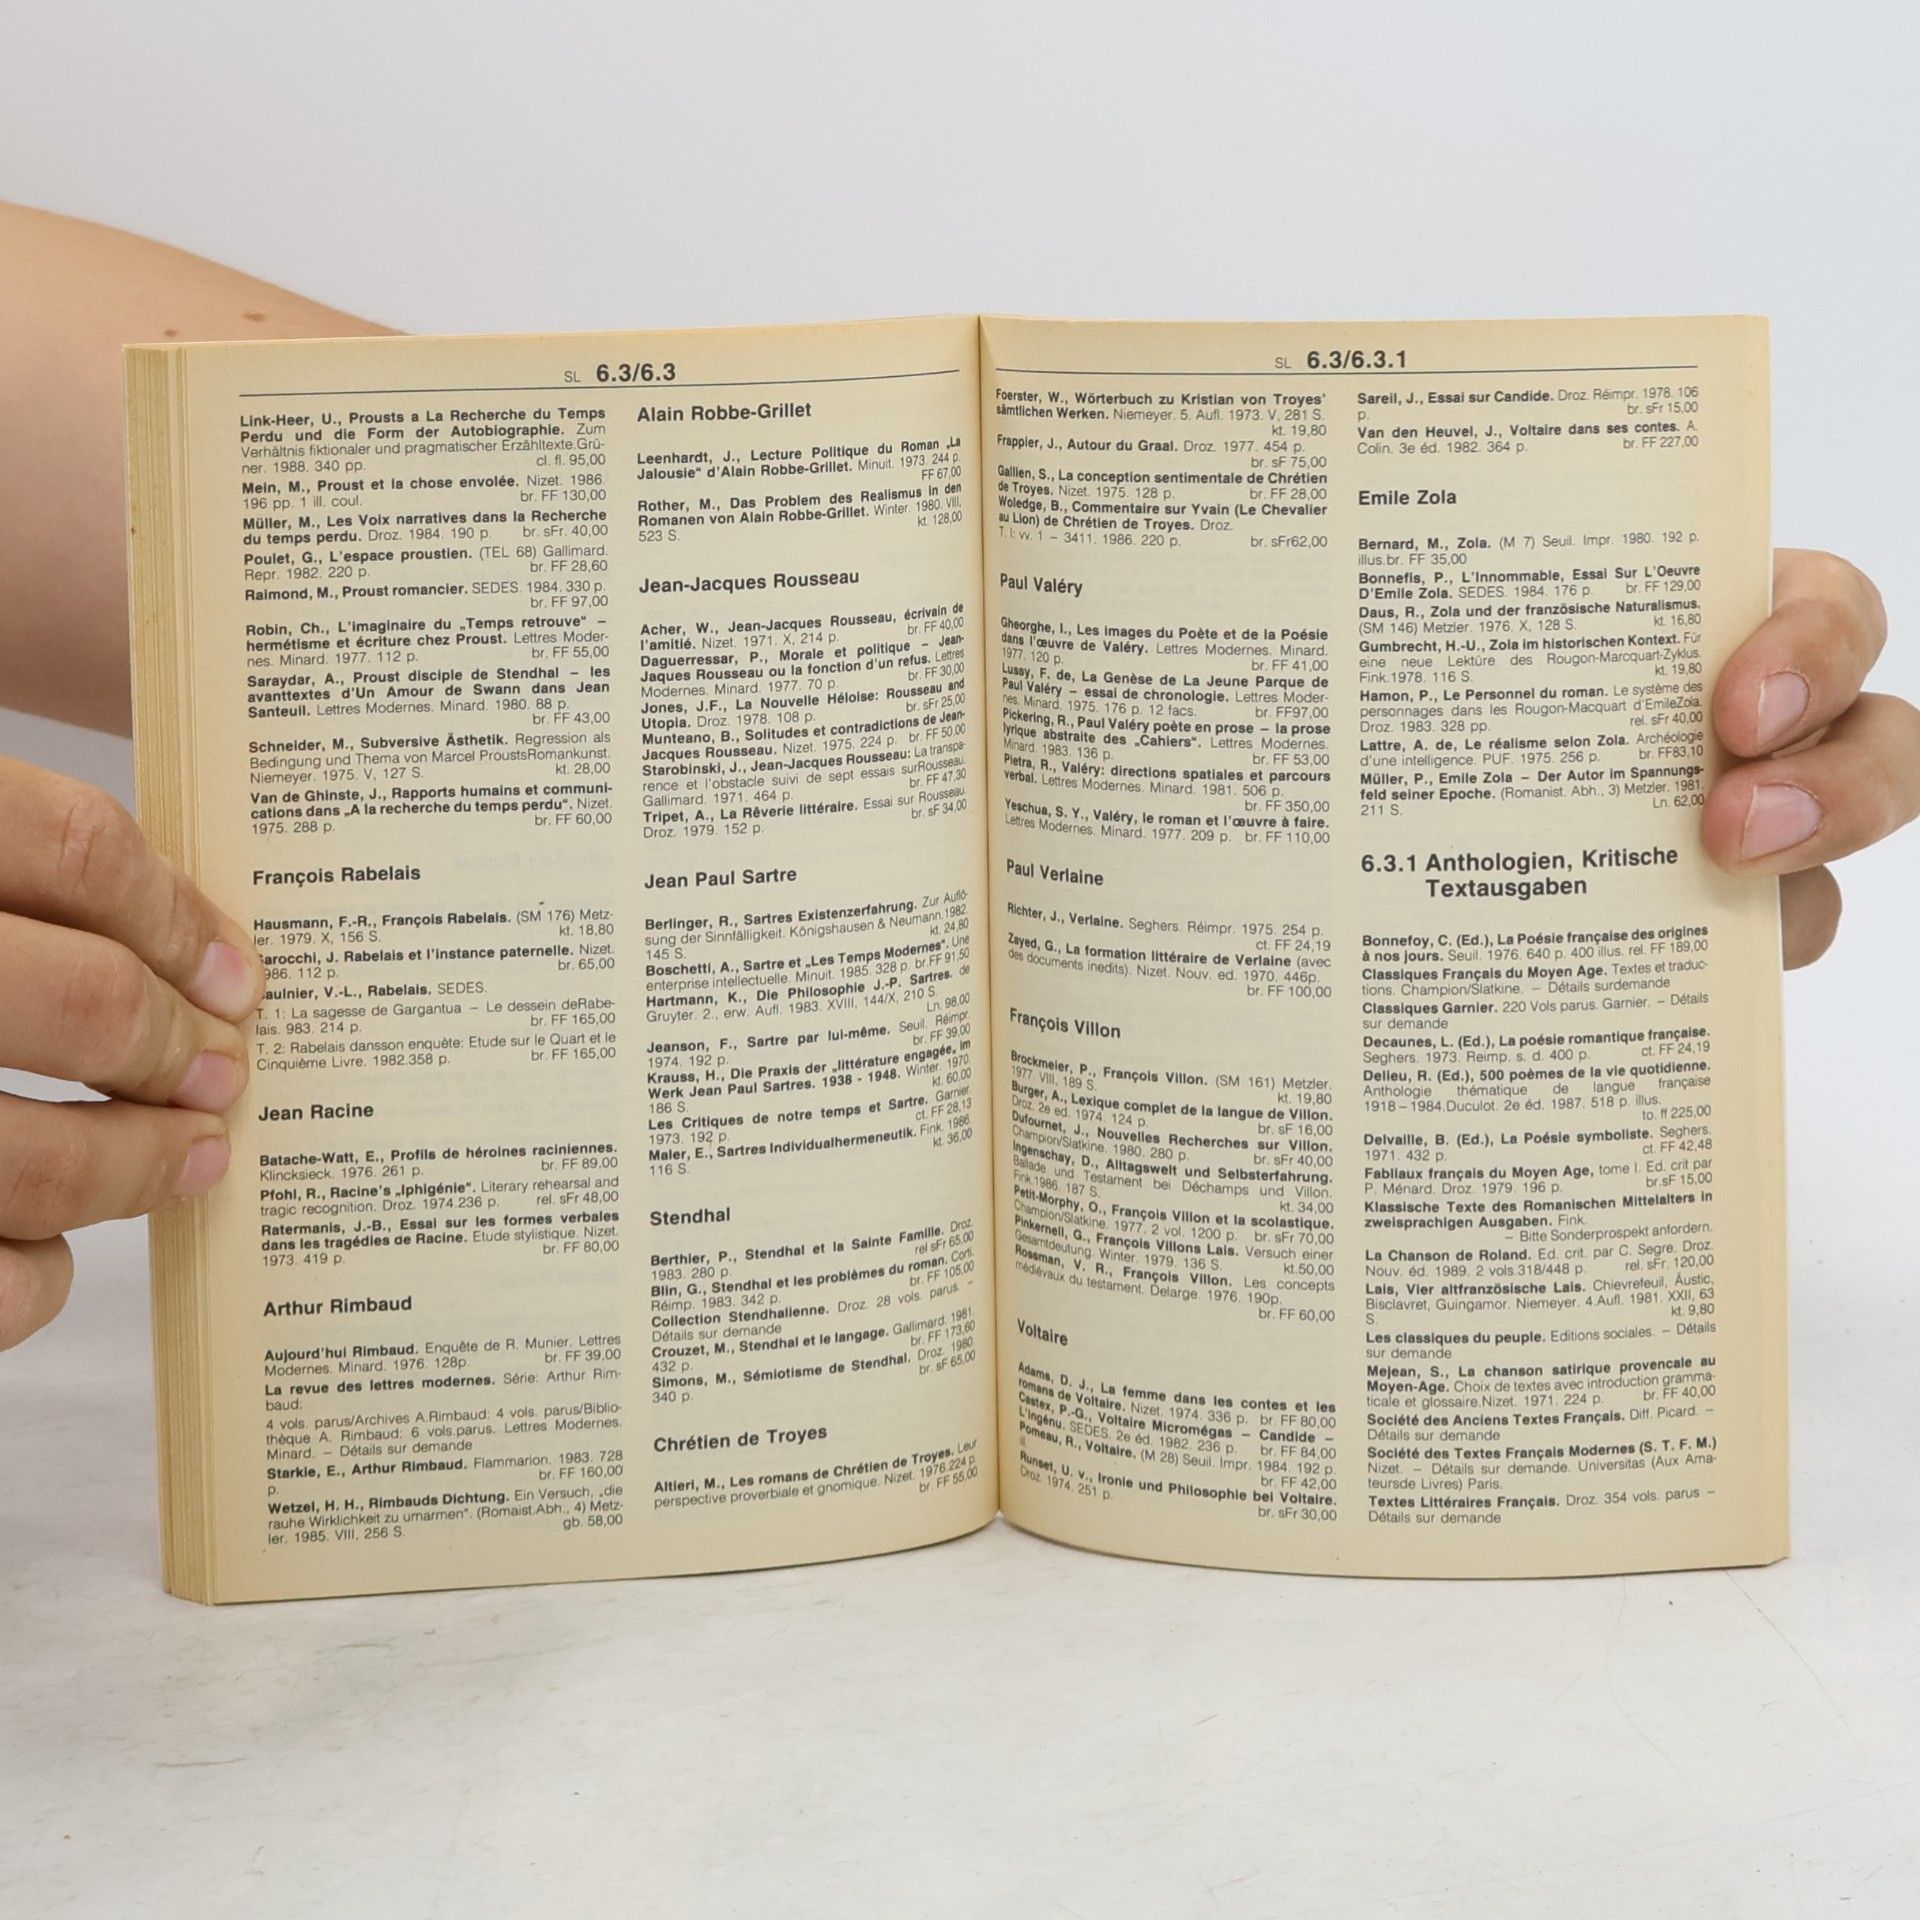 SL 6.3/6.3
Link-Heer, U., Prousts a La Recherche du Temps
Perdu und die Form der Autobiographie. Zum
Verhältnis fiktionaler und pragmatischer Erzähltexte.Grü-
ner. 1988. 340 pp. cl. fl. 95,00
Mein, M., Proust et la chose envolée. Nizet. 1986.
196 pp. 1 ill. coul. br. FF 130,00
Müller, M., Les Voix narratives dans la Recherche
du temps perdu. Droz. 1984. 190 p. br. sFr. 40,00
Poulet, G., L'espace proustien. (TEL 68) Gallimard.
Repr. 1982. 220 p. br. FF 28,60
Raimond, M., Proust romancier. SEDES. 1984. 330 p.
br. FF 97,00
Robin, Ch., L'imaginaire du „Temps retrouve" –
hermétisme et écriture chez Proust. Lettres Moder-
nes. Minard. 1977. 112 p. br. FF 55,00
Saraydar, A., Proust disciple de Stendhal – les
avanttextes d'Un Amour de Swann dans Jean
Santeuil. Lettres Modernes. Minard. 1980. 88 p.
br. FF 43,00
Schneider, M., Subversive Ästhetik. Regression als
Bedingung und Thema von Marcel ProustsRomankunst.
Niemeyer. 1975. V, 127 S. kt. 28,00
Van de Ghinste, J., Rapports humains et communi-
cations dans „A la recherche du temps perdu". Nizet.
1975. 288 p. br. FF 60,00
François Rabelais
Hausmann, F.-R., François Rabelais. (SM 176) Metz-
ler. 1979. X, 156 S. kt. 18,80
arocchi, J. Rabelais et l'instance paternelle. Nizet.
986. 112 p. br. 65,00
aulnier, V.-L., Rabelais. SEDES.
T. 1: La sagesse de Gargantua – Le dessein deRabe-
lais. 983. 214 p. br. FF 165,00
T. 2: Rabelais dansson enquête: Etude sur le Quart et le
Cinquième Livre. 1982.358 p. br. FF 165,00
Jean Racine
Batache-Watt, E., Profils de héroines raciniennes.
Klincksieck. 1976. 261 p. br. FF 89,00
Pfohl, R., Racine's „Iphigénie". Literary rehearsal and
tragic recognition. Droz. 1974.236 p. rel. sFr 48,00
Ratermanis, J.-B., Essai sur les formes verbales
dans les tragédies de Racine. Etude stylistique. Nizet.
1973. 419 p. br. FF 80,00
Arthur Rimbaud
Aujourd'hui Rimbaud. Enquête de R. Munier. Lettres
Modernes. Minard. 1976. 128p. br. FF 39,00
La revue des lettres modernes. Série: Arthur Rim-
baud:
4 vols. parus/Archives A.Rimbaud: 4 vols. parus/Biblio-
thèque A. Rimbaud: 6 vols.parus. Lettres Modernes.
Minard. – Détails sur demande
Starkie, E., Arthur Rimbaud. Flammarion. 1983. 728
p. br. FF 160,00
Wetzel, H. H., Rimbauds Dichtung. Ein Versuch, „die
rauhe Wirklichkeit zu umarmen". (Romaist.Abh., 4) Metz-
ler. 1985. VIII, 256 S. gb. 58,00
Alain Robbe-Grillet
Leenhardt, J., Lecture Politique du Roman „La
Jalousie" d'Alain Robbe-Grillet. Minuit. 1973. 244 p.
FF 67,00
Rother, M., Das Problem des Realismus in den
Romanen von Alain Robbe-Grillet. Winter. 1980. VIII,
523 S. kt. 128,00
Jean-Jacques Rousseau
Acher, W., Jean-Jacques Rousseau, écrivain de
l'amitié. Nizet. 1971. X, 214 p. br. FF 40,00
Daguerressar, P., Morale et politique – Jean-
Jaques Rousseau ou la fonction d'un refus. Lettres
Modernes. Minard. 1977. 70 p. br. FF 30,00
Jones, J.F., La Nouvelle Héloise: Rousseau and
Utopia. Droz. 1978. 108 p. br. sFr 25,00
Munteano, B., Solitudes et contradictions de Jean-
Jacques Rousseau. Nizet. 1975. 224 p. br. FF 50,00
Starobinski, J., Jean-Jacques Rousseau: La transpa-
rence et l'obstacle suivi de sept essais surRousseau.
Gallimard. 1971. 464 p. br. FF 47,30
Tripet, A., La Rêverie littéraire. Essai sur Rousseau.
Droz. 1979. 152 p. br. sF 34,00
Jean Paul Sartre
Berlinger, R., Sartres Existenzerfahrung. Zur Auflö-
sung der Sinnfälligkeit. Königshausen & Neumann.1982.
145 S. kt. 24,80
Boschetti, A., Sartre et „Les Temps Modernes". Une
enterprise intellectuelle. Minuit. 1985. 328 p. br.FF 91,50
Hartmann, K., Die Philosophie J.-P. Sartres. de
Gruyter. 2., erw. Aufl. 1983. XVIII, 144/X, 210 S.
Ln. 98,00
Jeanson, F., Sartre par lui-même. Seuil. Réimpr.
1974. 192 p. br. FF 39,00
Krauss, H., Die Praxis der „littérature engagée„ im
Werk Jean Paul Sartres. 1938 - 1948. Winter. 1970.
186 S. kt. 60,00
Les Critiques de notre temps et Sartre. Garnier.
1973. 192 p. ct. FF 28,13
Maler, E., Sartres Individualhermeneutik. Fink. 1986.
116 S. kt. 36,00
Stendhal
Berthier, P., Stendhal et la Sainte Famille. Droz.
1983. 280 p. rel sFr 65,00
Blin, G., Stendhal et les problèmes du roman. Corti.
Réimp. 1983. 342 p. br. FF 105,00
Collection Stendhalienne. Droz. 28 vols. parus. –
Détails sur demande
Crouzet, M., Stendhal et le langage. Gallimard. 1981.
432 p. br. FF 173,60
Simons, M., Sémiotisme de Stendhal. Droz. 1980
340 p. br. sF 65,00
Chrétien de Troyes
Altieri, M., Les romans de Chrétien de Troyes. Leur
perspective proverbiale et gnomique. Nizet. 1976.224 p.
br. FF 55,00
SL 6.3/6.3.1
Foerster, W., Wörterbuch zu Kristian von Troyes'
sämtlichen Werken. Niemeyer. 5. Aufl. 1973. V, 281 S.
kt. 19,80
Frappier, J., Autour du Graal. Droz. 1977. 454 p.
br. sF 75,00
Gallien, S., La conception sentimentale de Chrétien
de Troyes. Nizet. 1975. 128 p. br. FF 28,00
Woledge, B., Commentaire sur Yvain (Le Chevalier
au Lion) de Chrétien de Troyes. Droz.
T. I: vv. 1 – 3411. 1986. 220 p. br. sFr62,00
Paul Valéry
Gheorghe, I., Les images du Poète et de la Poésie
dans l'œuvre de Valéry. Lettres Modernes. Minard.
1977. 120 p. br. FF 41,00
Lussy, F. de, La Genèse de La Jeune Parque de
Paul Valéry – essai de chronologie. Lettres Moder-
nes. Minard. 1975. 176 p. 12 facs. br. FF97,00
Pickering, R., Paul Valéry poète en prose – la prose
lyrique abstraite des „Cahiers". Lettres Modernes.
Minard. 1983. 136 p. br. FF 53,00
Pietra, R., Valéry: directions spatiales et parcours
verbal. Lettres Modernes. Minard. 1981. 506 p.
br. FF 350,00
Yeschua, S. Y., Valéry, le roman et l'œuvre à faire.
Lettres Modernes. Minard. 1977. 209 p. br. FF 110,00
Paul Verlaine
Richter, J., Verlaine. Seghers. Réimpr. 1975. 254 p.
ct. FF 24,19
Zayed, G., La formation littéraire de Verlaine (avec
des documents inedits). Nizet. Nouv. ed. 1970. 446p.
br. FF 100,00
François Villon
Brockmeier, P., François Villon. (SM 161) Metzler.
1977. VIII, 189 S. kt. 19,80
Burger, A., Lexique complet de la langue de Villon.
Droz. 2e ed. 1974. 124 p. br. sF 16,00
Dufournet, J., Nouvelles Recherches sur Villon.
Champion/Slatkine. 1980. 280 p. br. sFr 40,00
Ingenschay, D., Alltagswelt und Selbsterfahrung.
Ballade und Testament bei Déchamps und Villon.
Fink.1986. 187 S. kt. 34,00
Petit-Morphy, O., François Villon et la scolastique.
Champion/Slatkine. 1977. 2 vol. 1200 p. br. sFr 70,00
Pinkernell, G., François Villons Lais. Versuch einer
Gesamtdeutung. Winter. 1979. 136 S. kt.50,00
Rossman, V. R., François Villon. Les concepts
médiévaux du testament. Delarge. 1976. 190p.
br. FF 60,00
Voltaire
Adams, D. J., La femme dans les contes et les
romans de Voltaire. Nizet. 1974. 336 p. br. FF 80,00
Castex, P.-G., Voltaire Micromégas – Candide –
L'Ingénu. SEDES. 2e éd. 1982. 236 p. br. FF 84,00
Pomeau, R., Voltaire. (M 28) Seuil. Impr. 1984. 192 p.
il. br. FF 42,00
Runset, U. v., Ironie und Philosophie bei Voltaire.
Droz. 1974. 251 p. br. sFr 30,00
Sareil, J., Essai sur Candide. Droz. Réimpr. 1978. 106
p. br. sFr 15,00
Van den Heuvel, J., Voltaire dans ses contes. A.
Colin. 3e éd. 1982. 364 p. br. FF 227,00
Emile Zola
Bernard, M., Zola. (M 7) Seuil. Impr. 1980. 192 p.
illus.br. FF 35,00
Bonnefis, P., L'Innommable, Essai Sur L'Oeuvre
D'Emile Zola. SEDES. 1984. 176 p. br. FF 129,00
Daus, R., Zola und der französische Naturalismus.
(SM 146) Metzler. 1976. X, 128 S. kt. 16,80
Gumbrecht, H.-U., Zola im historischen Kontext. Für
eine neue Lektüre des Rougon-Marcquart-Zyklus.
Fink.1978. 116 S. kt. 19,80
Hamon, P., Le Personnel du roman. Le système des
personnages dans les Rougon-Macquart d'EmileZola.
Droz. 1983. 328 pp. rel. sFr 40,00
Lattre, A. de, Le réalisme selon Zola. Archéologie
d'une intelligence. PUF. 1975. 256 p. br. FF83,10
Müller, P., Emile Zola – Der Autor im Spannungs-
feld seiner Epoche. (Romanist. Abh., 3) Metzler. 1981.
211 S. Ln. 62,00
6.3.1 Anthologien, Kritische
Textausgaben
Bonnefoy, C. (Ed.), La Poésie française des origines
à nos jours. Seuil. 1976. 640 p. 400 illus. rel. FF 189,00
Classiques Français du Moyen Age. Textes et traduc-
tions. Champion/Slatkine. – Détails surdemande
Classiques Garnier. 220 Vols parus. Garnier. – Détails
sur demande
Decaunes, L. (Ed.), La poésie romantique française.
Seghers. 1973. Reimp. s. d. 400 p. ct. FF 24,19
Delieu, R. (Ed.), 500 poèmes de la vie quotidienne.
Anthologie thématique de langue française
1918–1984.Duculot. 2e éd. 1987. 518 p. illus.
to. ff 225,00
Delvaille, B. (Ed.), La Poésie symboliste. Seghers.
1971. 432 p. ct. FF 42,48
Fabliaux français du Moyen Age, tome I. Ed. crit par
P. Ménard. Droz. 1979. 196 p. br.sF 15,00
Klassische Texte des Romanischen Mittelalters in
zweisprachigen Ausgaben. Fink.
– Bitte Sonderprospekt anfordern.
La Chanson de Roland. Ed. crit. par C. Segre. Droz.
Nouv. éd. 1989. 2 vols.318/448 p. rel. sFr. 120,00
Lais, Vier altfranzösische Lais. Chievrefeuil, Äustic,
Bisclavret, Guingamor. Niemeyer. 4.Aufl. 1981. XXII, 63
S. kt. 9,80
Les classiques du peuple. Editions sociales. – Détails
sur demande
Mejean, S., La chanson satirique provencale au
Moyen-Age. Choix de textes avec introduction gramma-
ticale et glossaire.Nizet. 1971. 224 p. br. FF 40,00
Société des Anciens Textes Français. Diff. Picard. –
Détails sur demande
Société des Textes Français Modernes (S. T. F. M.)
Nizet. – Détails sur demande. Universitas (Aux Ama-
teursde Livres) Paris.
Textes Littéraires Français. Droz. 354 vols. parus –
Détails sur demande